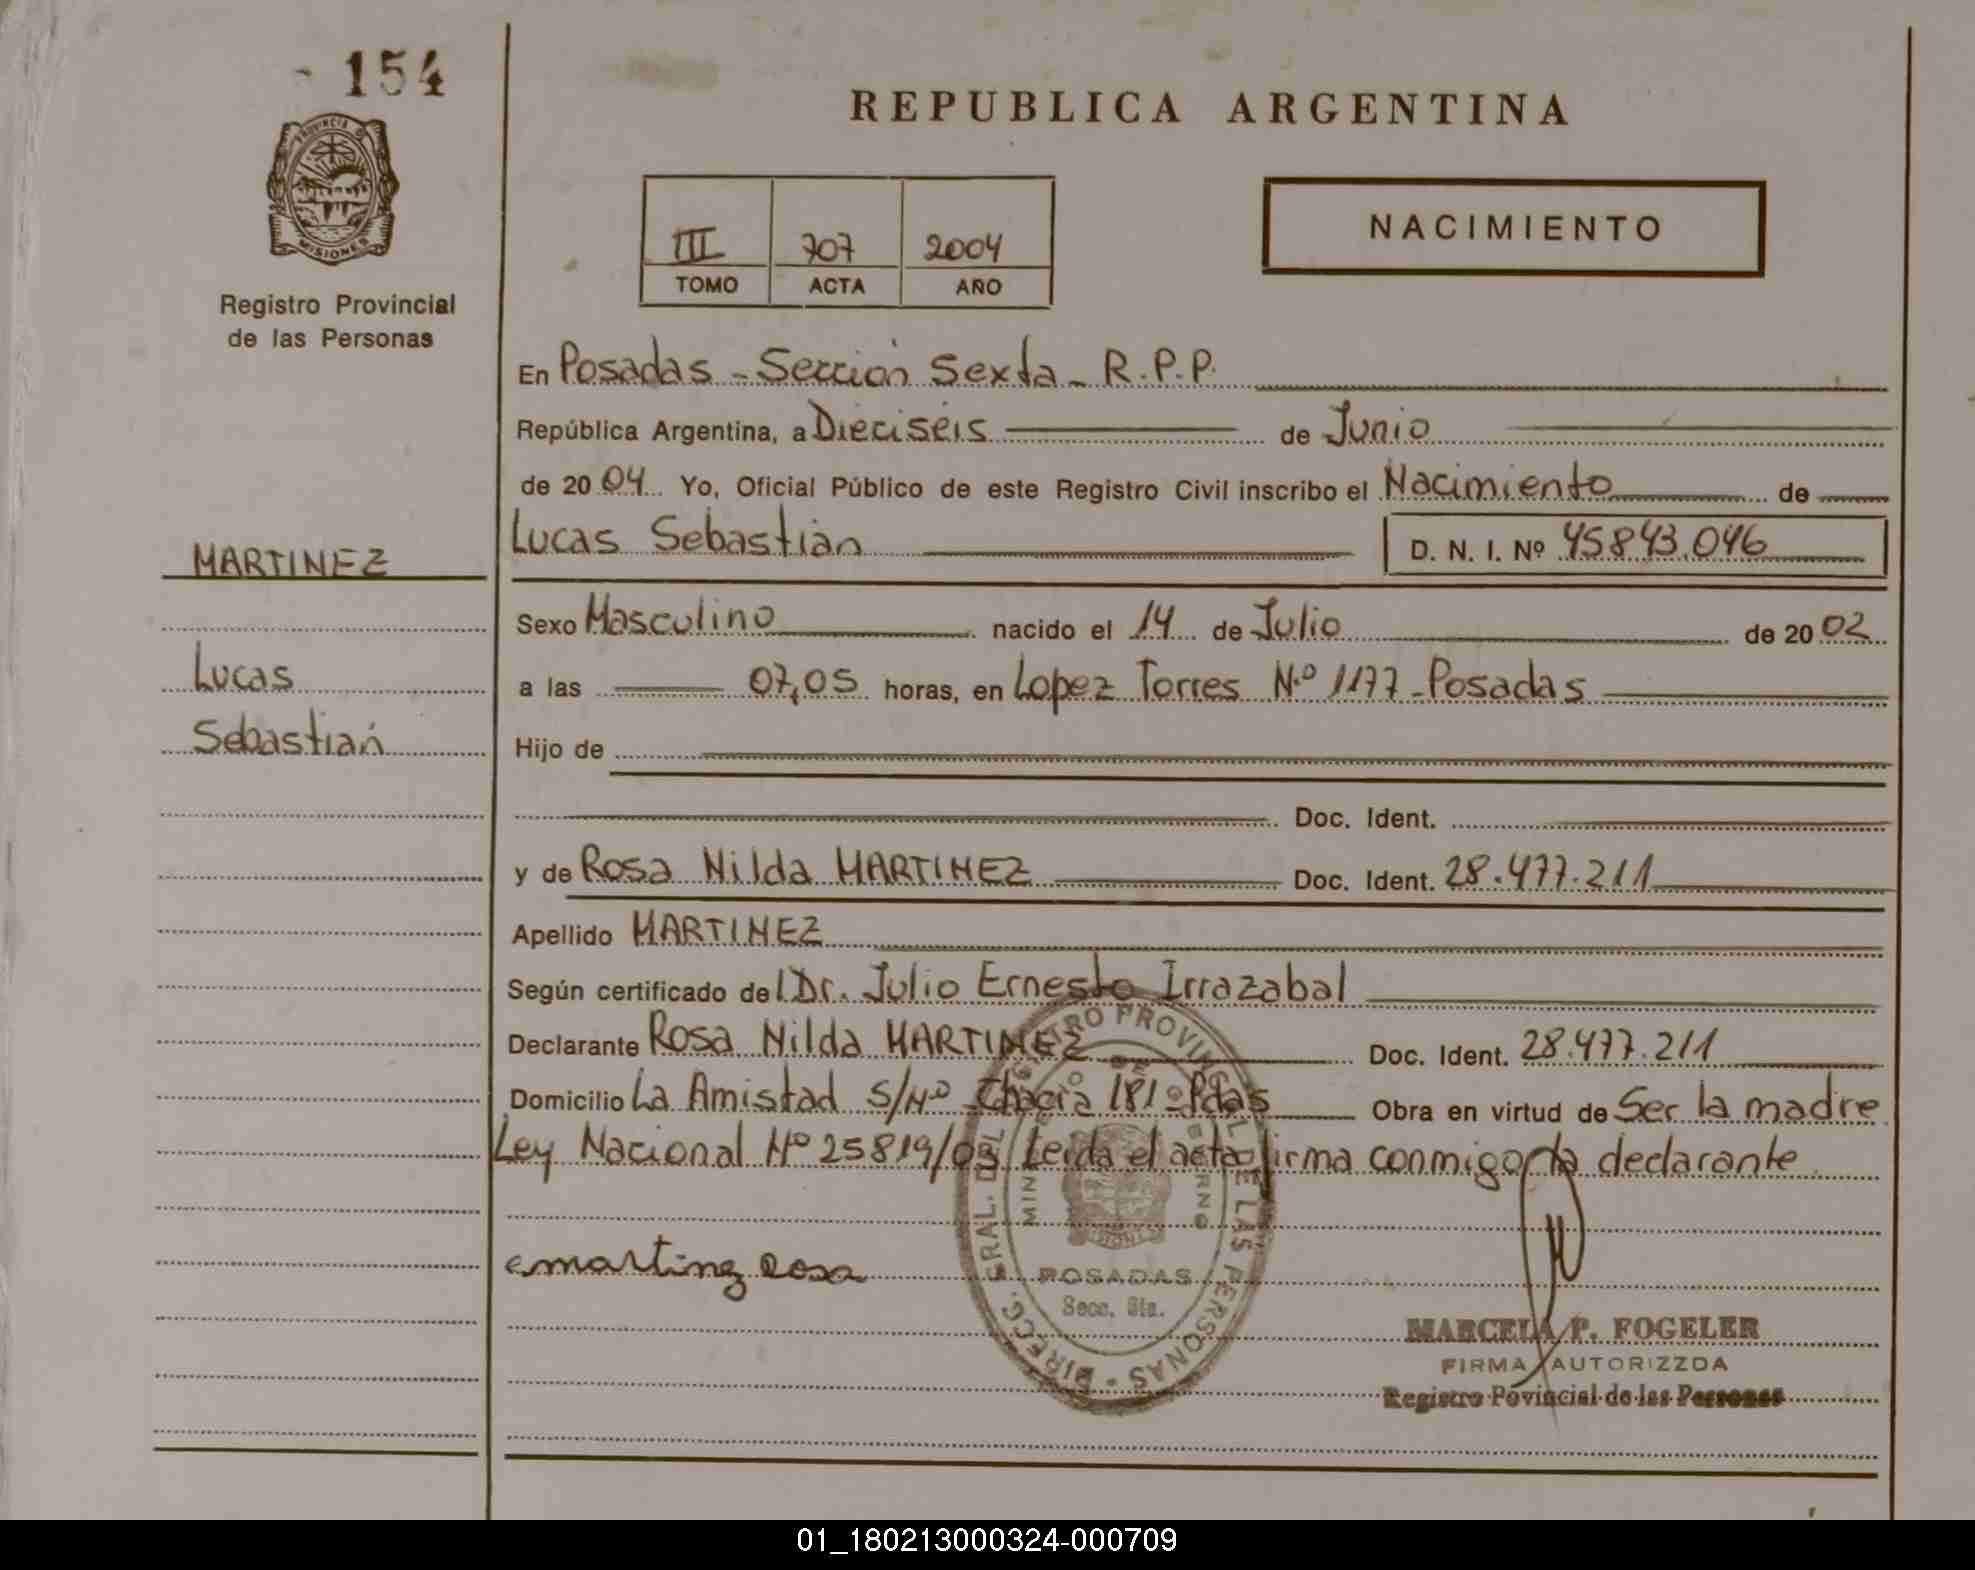 154
PROVINCIA DE
MISIONES
Registro Provincial
de las Personas
REPUBLICA ARGENTINA
NACIMIENTO
III 707 2004
TOMO ACTA AÑO
En Posadas - Sección Sexta - R.P.P.
República Argentina, a Dieciséis de Junio
de 2004. Yo, Oficial Público de este Registro Civil inscribo el Nacimiento de
Lucas Sebastián D. N. I. Nº 45843.046
MARTINEZ
Lucas
Sebastián
Sexo Masculino nacido el 14 de Julio de 2002
a las 07,05 horas, en Lopez Torres N.º 1177 - Posadas
Hijo de
Doc. Ident.
y de Rosa Nilda MARTINEZ Doc. Ident. 28.477.211
Apellido MARTINEZ
Según certificado del Dr. Julio Ernesto Irrazabal
Declarante Rosa Nilda MARTINEZ Doc. Ident. 28.477.211
Domicilio La Amistad S/Nº Chacra 181 - Pdas Obra en virtud de Ser la madre
Ley Nacional Nº 25819/03 Leida el acta firma conmigo la declarante.
martinez Rosa
DIRECC. GRAL. DEL REGISTRO PROVINCIAL DE LAS PERSONAS
MINISTERIO DE GOBIERNO
MISIONES
POSADAS
Secc. 6ta.
MARCELA P. FOGELER
FIRMA AUTORIZZDA
Registro Povincial de las Personas
01_180213000324-000709